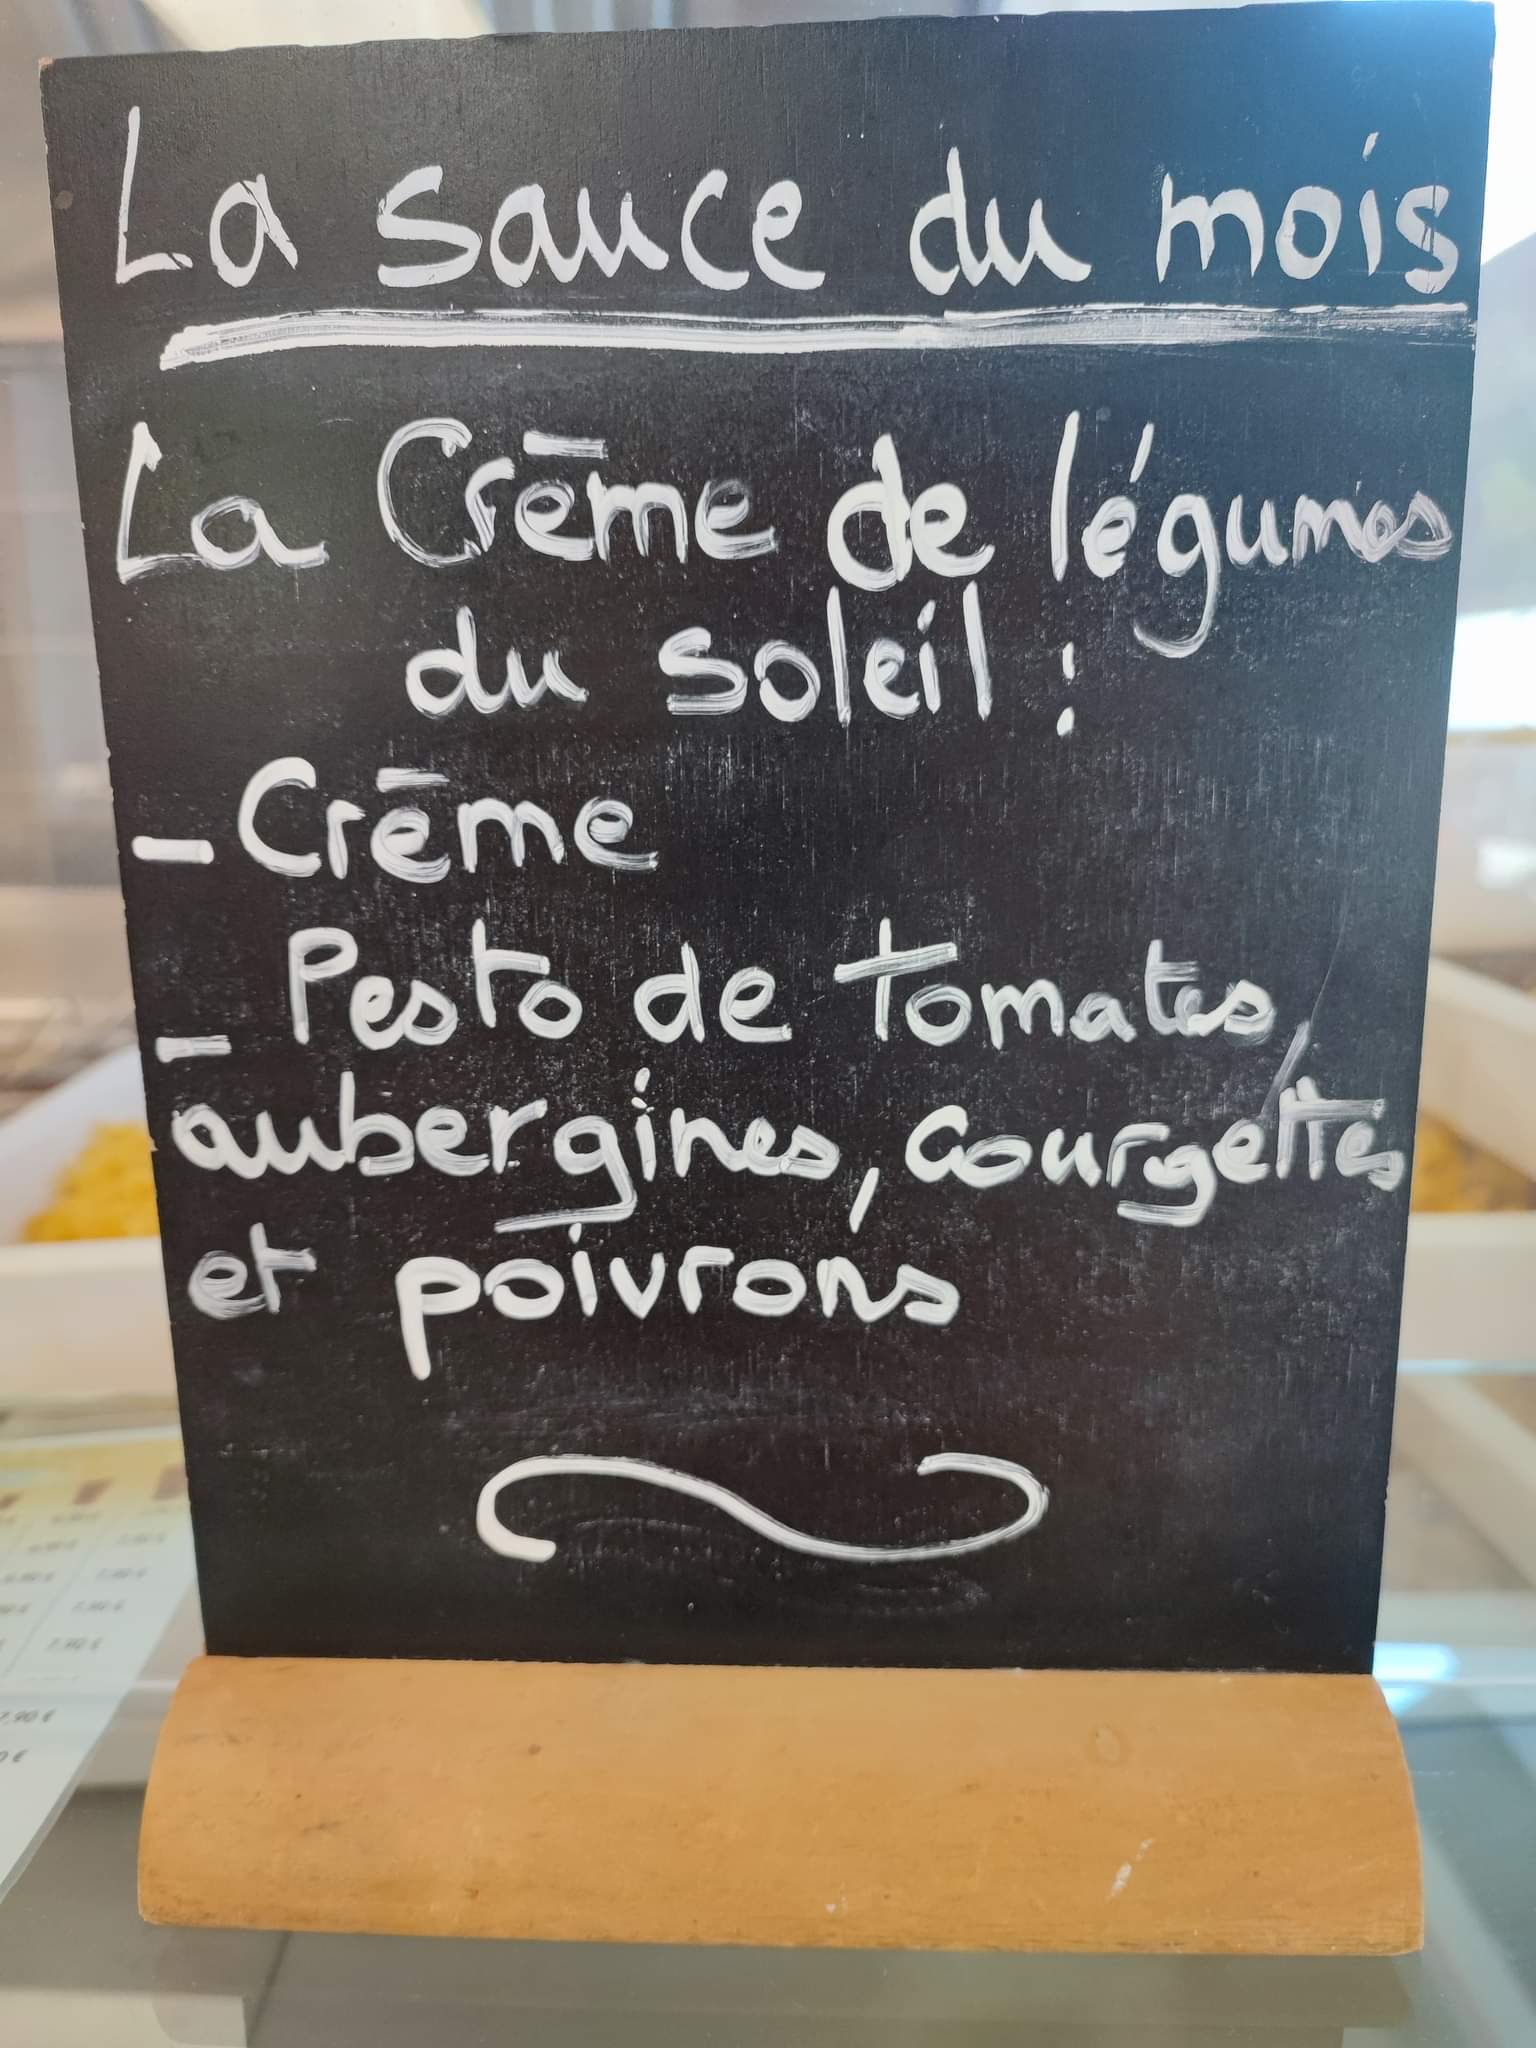 La sauce du mois
La Crēme de légumes
du soleil :
- Crēme
- Pesto de tomates,
aubergines, courgettes
et poivrons
7.90 €
7.90 €